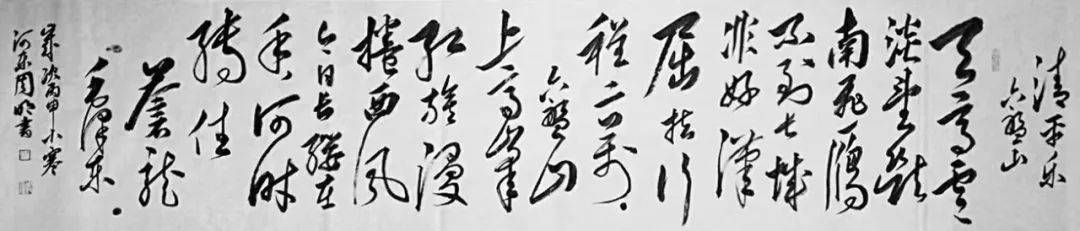 清平乐
六盘山
天高云
淡望断
南飞雁
不到长城
非好漢
屈指行
程二万
六盘山
上高峰
红旗漫
捲西风
今日长缨在
手何时
缚住
苍龙
毛泽东
岁次丙申小寒
河东周明书